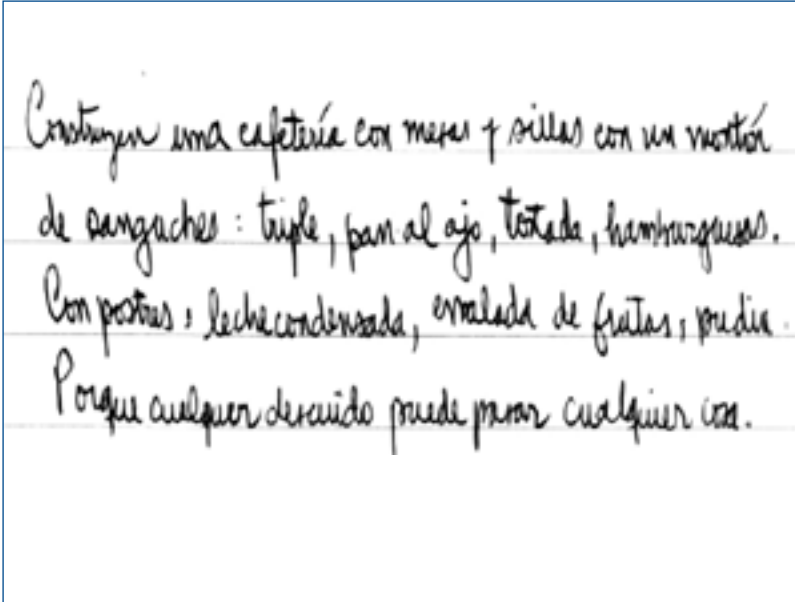 Construyen una cafetería con mesas y sillas con un montón
de sanguches : triple, pan al ajo, tostada, hamburguesas.
Con postres : leche condensada, ensalada de frutas, pudin.
Porque cualquier descuido puede pasar cualquier cosa.